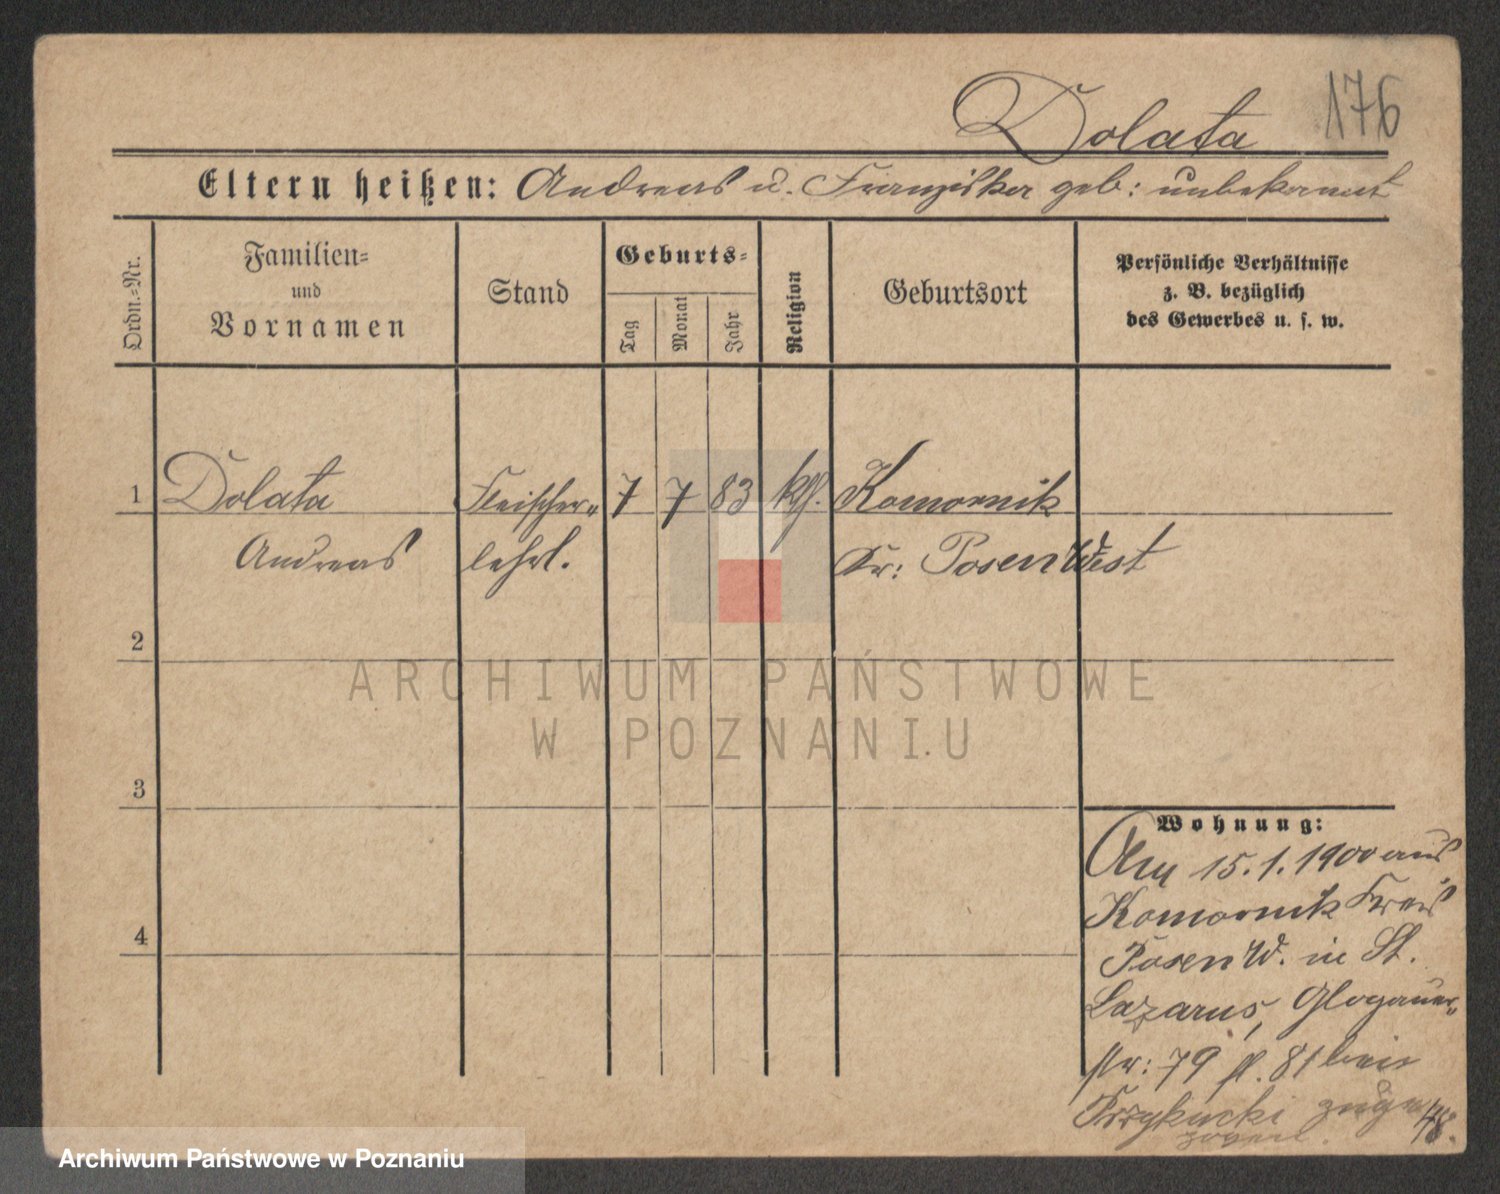 Dolata 176
Eltern heißen: Andreas u. Franziska geb: unbekannt
Ordn.=Nr.
Familien=
und
Vornamen
Stand
Geburts=
Tag
Monat
Jahr
Religion
Geburtsort
Persönliche Verhältnisse
z. B. bezüglich
des Gewerbes u. s. w.
1 Dolata Fleischer= 7 7 83 kth. Komornik
Andreas lehrl. Kr: Posen West
2
3
4
Wohnung:
Am 15.1.1900 aus
Komornik Kreis
Posen W. in St.
Lazarus, Glogauer=
str: 79 81 beim
ARCHIWUM PAŃSTWOWE
W POZNANIU
Archiwum Państwowe w Poznaniu